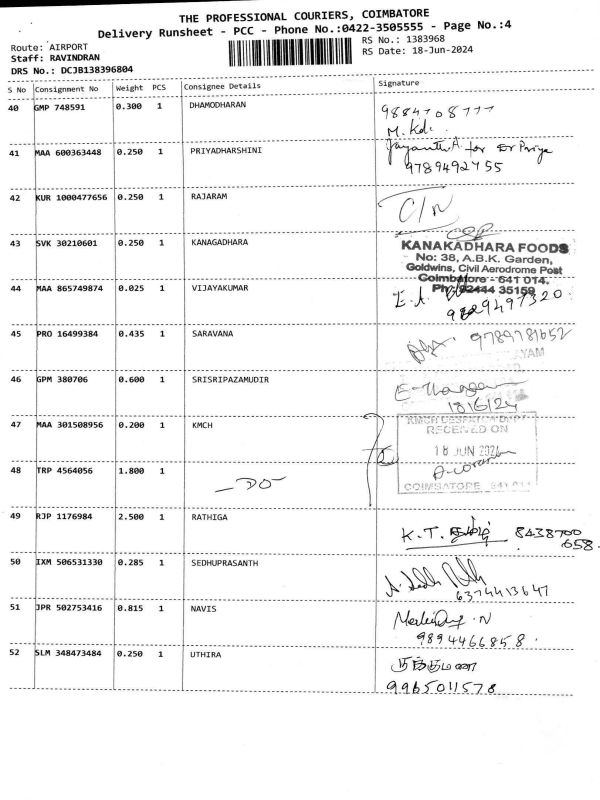 THE PROFESSIONAL COURIERS, COIMBATORE
Delivery Runsheet - PCC - Phone No.:0422-3505555 - Page No.:4
Route: AIRPORT
RS No.: 1383968
Staff: RAVINDRAN
RS Date: 18-Jun-2024
DRS No.: DCJB138396804
S No Consignment No Weight PCS Consignee Details Signature
40 GMP 748591 0.300 1 DHAMODHARAN
M.
41 MAA 600363448 0.250 1 PRIYADHARSHINI Jayanthi A for Priya
9789492755
42 KUR 1000477656 0.250 1 RAJARAM C/N
43 SVK 30210601 0.250 1 KANAGADHARA
KANAKADHARA FOODS
No: 38, A.B.K. Garden,
Goldwins, Civil Aerodrome Post
Coimbatore - 641 014.
Ph: 92444 35159
44 MAA 865749874 0.025 1 VIJAYAKUMAR
45 PRO 16499384 0.435 1 SARAVANA 9789781652
46 GPM 380706 0.600 1 SRISRIPAZAMUDIR
18/6/24
47 MAA 301508956 0.200 1 KMCH
KMCH DESPATCH DEPT
RECEIVED ON
18 JUN 2024
COIMBATORE - 641 014
48 TRP 4564056 1.800 1 -DO-
49 RJP 1176984 2.500 1 RATHIGA K.T. 8438700
658
50 IXM 506531330 0.285 1 SEDHUPRASANTH
6374413647
51 JPR 502753416 0.815 1 NAVIS
9894466858
52 SLM 348473484 0.250 1 UTHIRA
9965011578